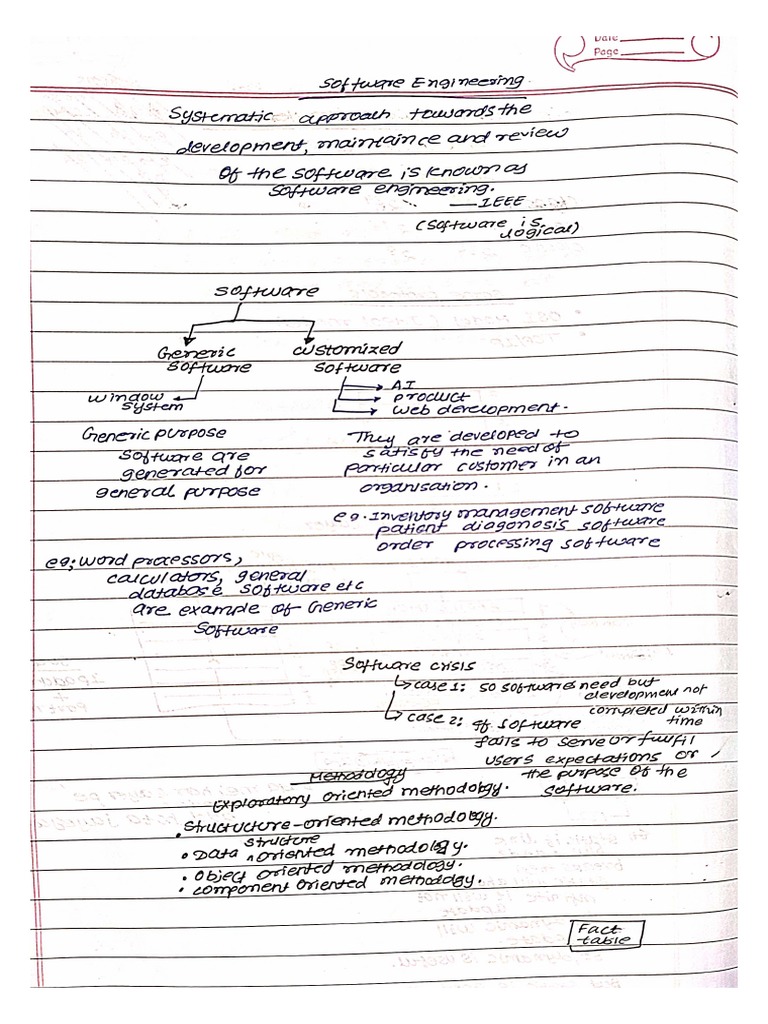 Date
Page
Software Engineering
Systematic approach towards the
development, maintaince and review
of the software is known as
software engineering.
— IEEE
(software is
logical)
Software
Generic
software
customized
software
window
system
AI
product
web development.
Generic purpose
software are
generated for
general purpose
They are developed to
satisfy the need of
particular customer in an
organisation.
eg. Inventory management software
patient diogonosis software
order processing software
eg; word processors,
calculators, general
database software etc
are example of Generic
software
Software crisis
case 1: 50 softwares need but
development not
completed within
time
case 2: if software
fails to serve or fulfil
users expectations or
the purpose of the
software.
Methodology
Exploratory oriented methodology.
• Structucture-oriented methodology.
• Data structure oriented methodology.
• object oriented methodology.
• component oriented methodology.
Fact
table